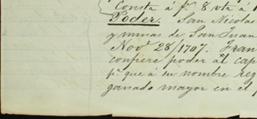 Consta á f. 8 vta á
Poder. San Nicolas
y minas de San Juan
Nov. 28/1707. Fran
confiere poder al cap
pa. que á su nombre reg
ganado mayor en el p